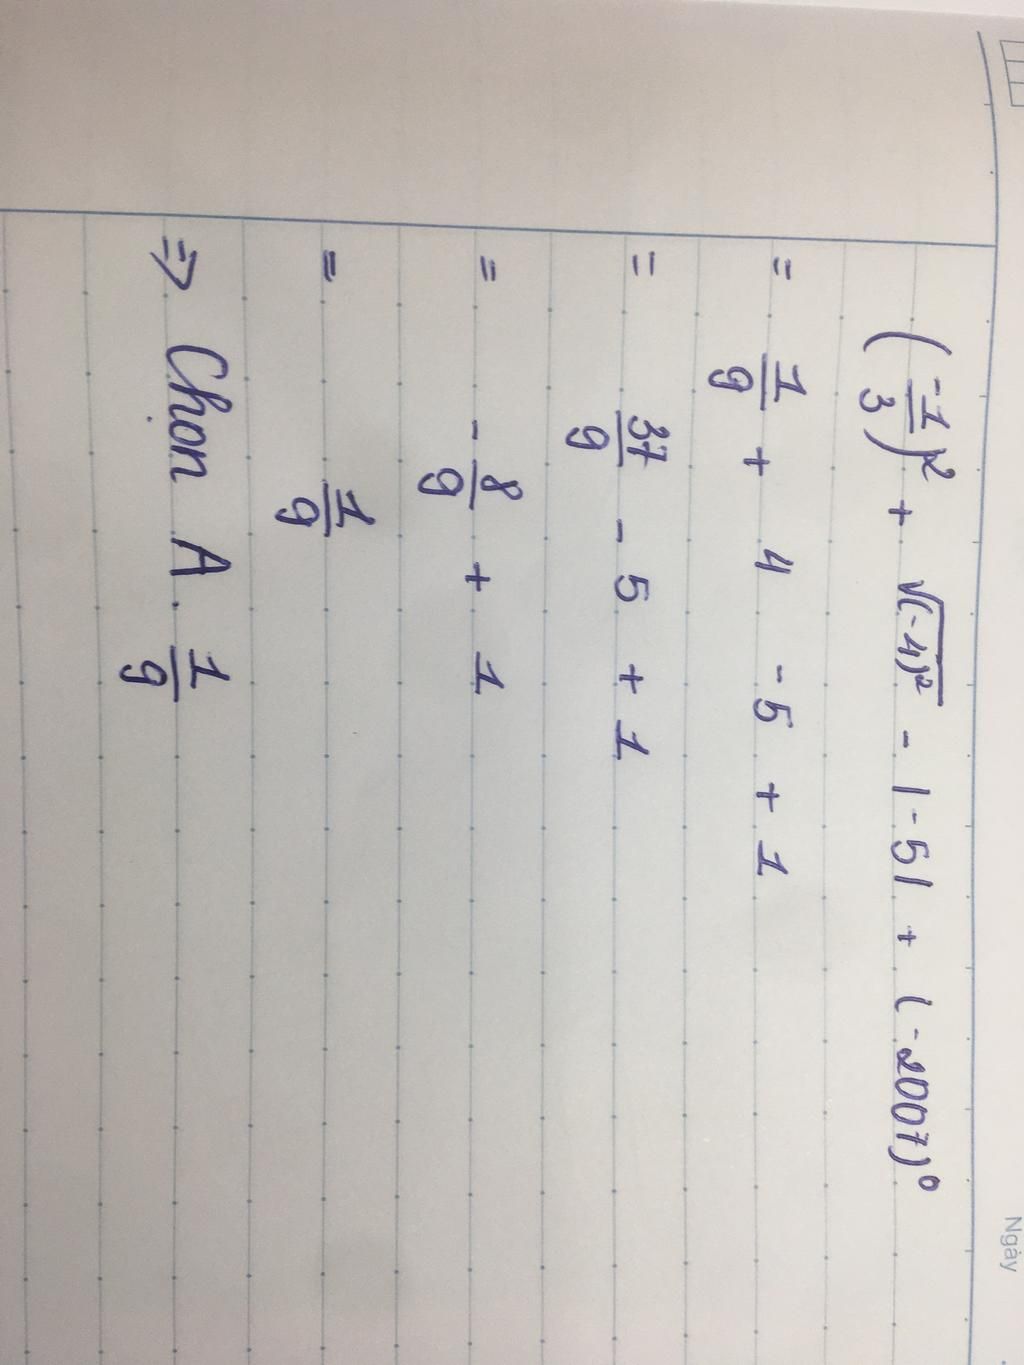 Ngày
(-1/3)² + √(-4)² - |-5| + (-2007)⁰
= 1/9 + 4 - 5 + 1
= 37/9 - 5 + 1
= -8/9 + 1
= 1/9
=> Chọn A. 1/9